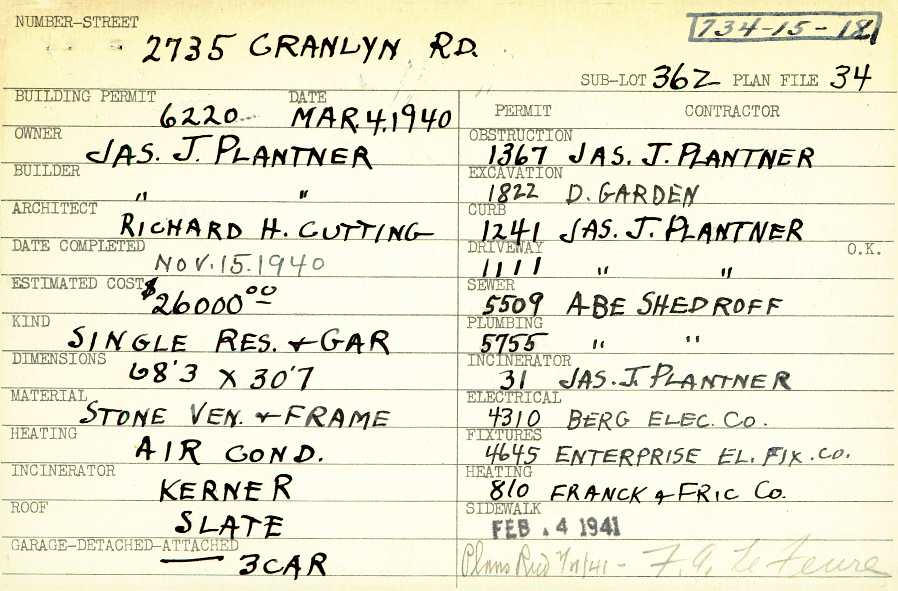 NUMBER-STREET
2735 GRANLYN RD.
734-15-18
SUB-LOT 362 PLAN FILE 34
BUILDING PERMIT DATE
6220 MAR.4.1940
OWNER
JAS. J. PLANTNER
BUILDER
" "
ARCHITECT
RICHARD H. CUTTING
DATE COMPLETED
NOV.15.1940
ESTIMATED COST
$26000 00
KIND
SINGLE RES. & GAR
DIMENSIONS
68'3 X 30'7
MATERIAL
STONE VEN. & FRAME
HEATING
AIR COND.
INCINERATOR
KERNER
ROOF
SLATE
GARAGE-DETACHED-ATTACHED
— 3 CAR
PERMIT CONTRACTOR
OBSTRUCTION
1367 JAS. J. PLANTNER
EXCAVATION
1822 D. GARDEN
CURB
1241 JAS. J. PLANTNER
DRIVEWAY O.K.
1111 " "
SEWER
5509 ABE SHEDROFF
PLUMBING
5755 " "
INCINERATOR
31 JAS. J. PLANTNER
ELECTRICAL
4310 BERG ELEC. CO.
FIXTURES
4645 ENTERPRISE EL. FIX. CO.
HEATING
810 FRANCK & FRIC CO.
SIDEWALK
FEB. 4 1941
Plans F. A. Le Fevre